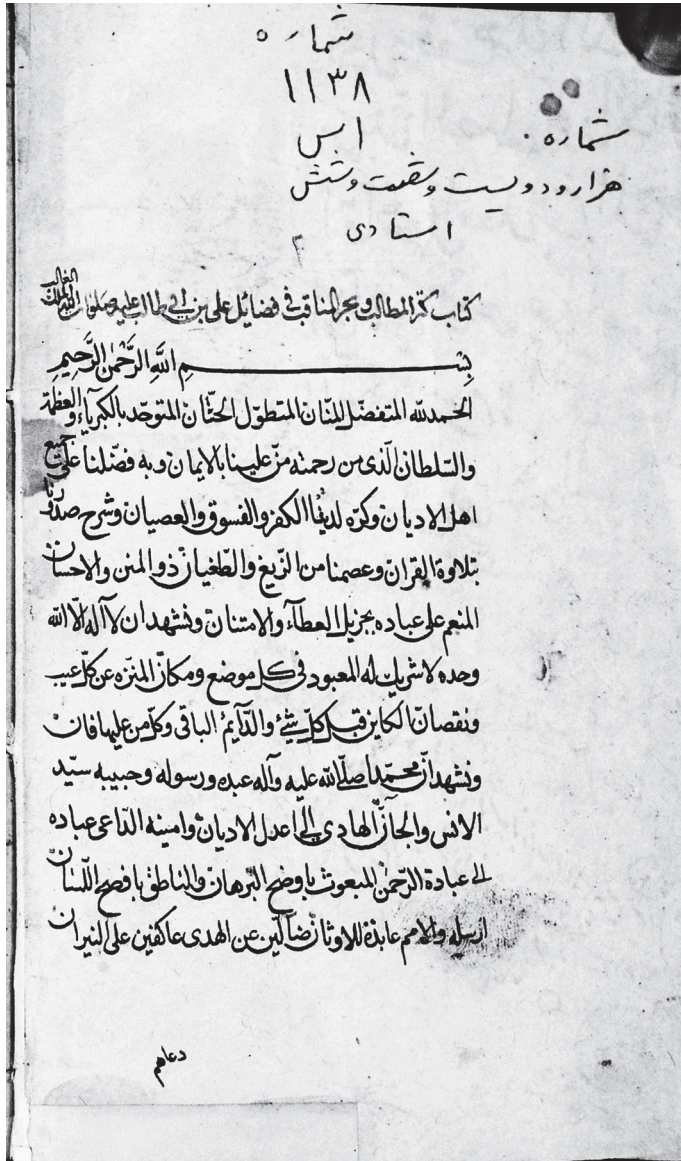 شماره
١١٣٨
ابس
شماره
هزار و دویست و شصت و شش
استادی
كتاب كنز المطالب وبحر المناقب في فضائل علي بن ابي طالب عليه صلوات الله الملك الغالب
بسم الله الرحمن الرحيم
الحمد لله المتفضل المنان المتطول الحنان المتوحد بالكبرياء والعظمة
والسلطان الذي من رحمته منّ علينا بالايمان وبه فضلنا على جميع
اهل الاديان وكره لدينا الكفر والفسوق والعصيان وشرح صدورنا
بتلاوة القران وعصمنا من الزيغ والطغيان ذو المنن والاحسان
المنعم على عباده بجزيل العطاء والامتنان ونشهد ان لا اله الا الله
وحده لا شريك له المعبود في كل موضع ومكان المنزه عن كل عيب
ونقصان الكاين قبل كل شيء والدايم الباقي وكل من عليها فان
ونشهد ان محمدا صلى الله عليه وآله عبده ورسوله وحبيبه سيد
الانس والجان الهادي الى اعدل الاديان وامينه الداعي عباده
الى عبادة الرحمن المبعوث باوضح البرهان والناطق بافصح اللسان
ارسله والامم عابدة للاوثان ضالين عن الهدى عاكفين على النيران
دعاهم